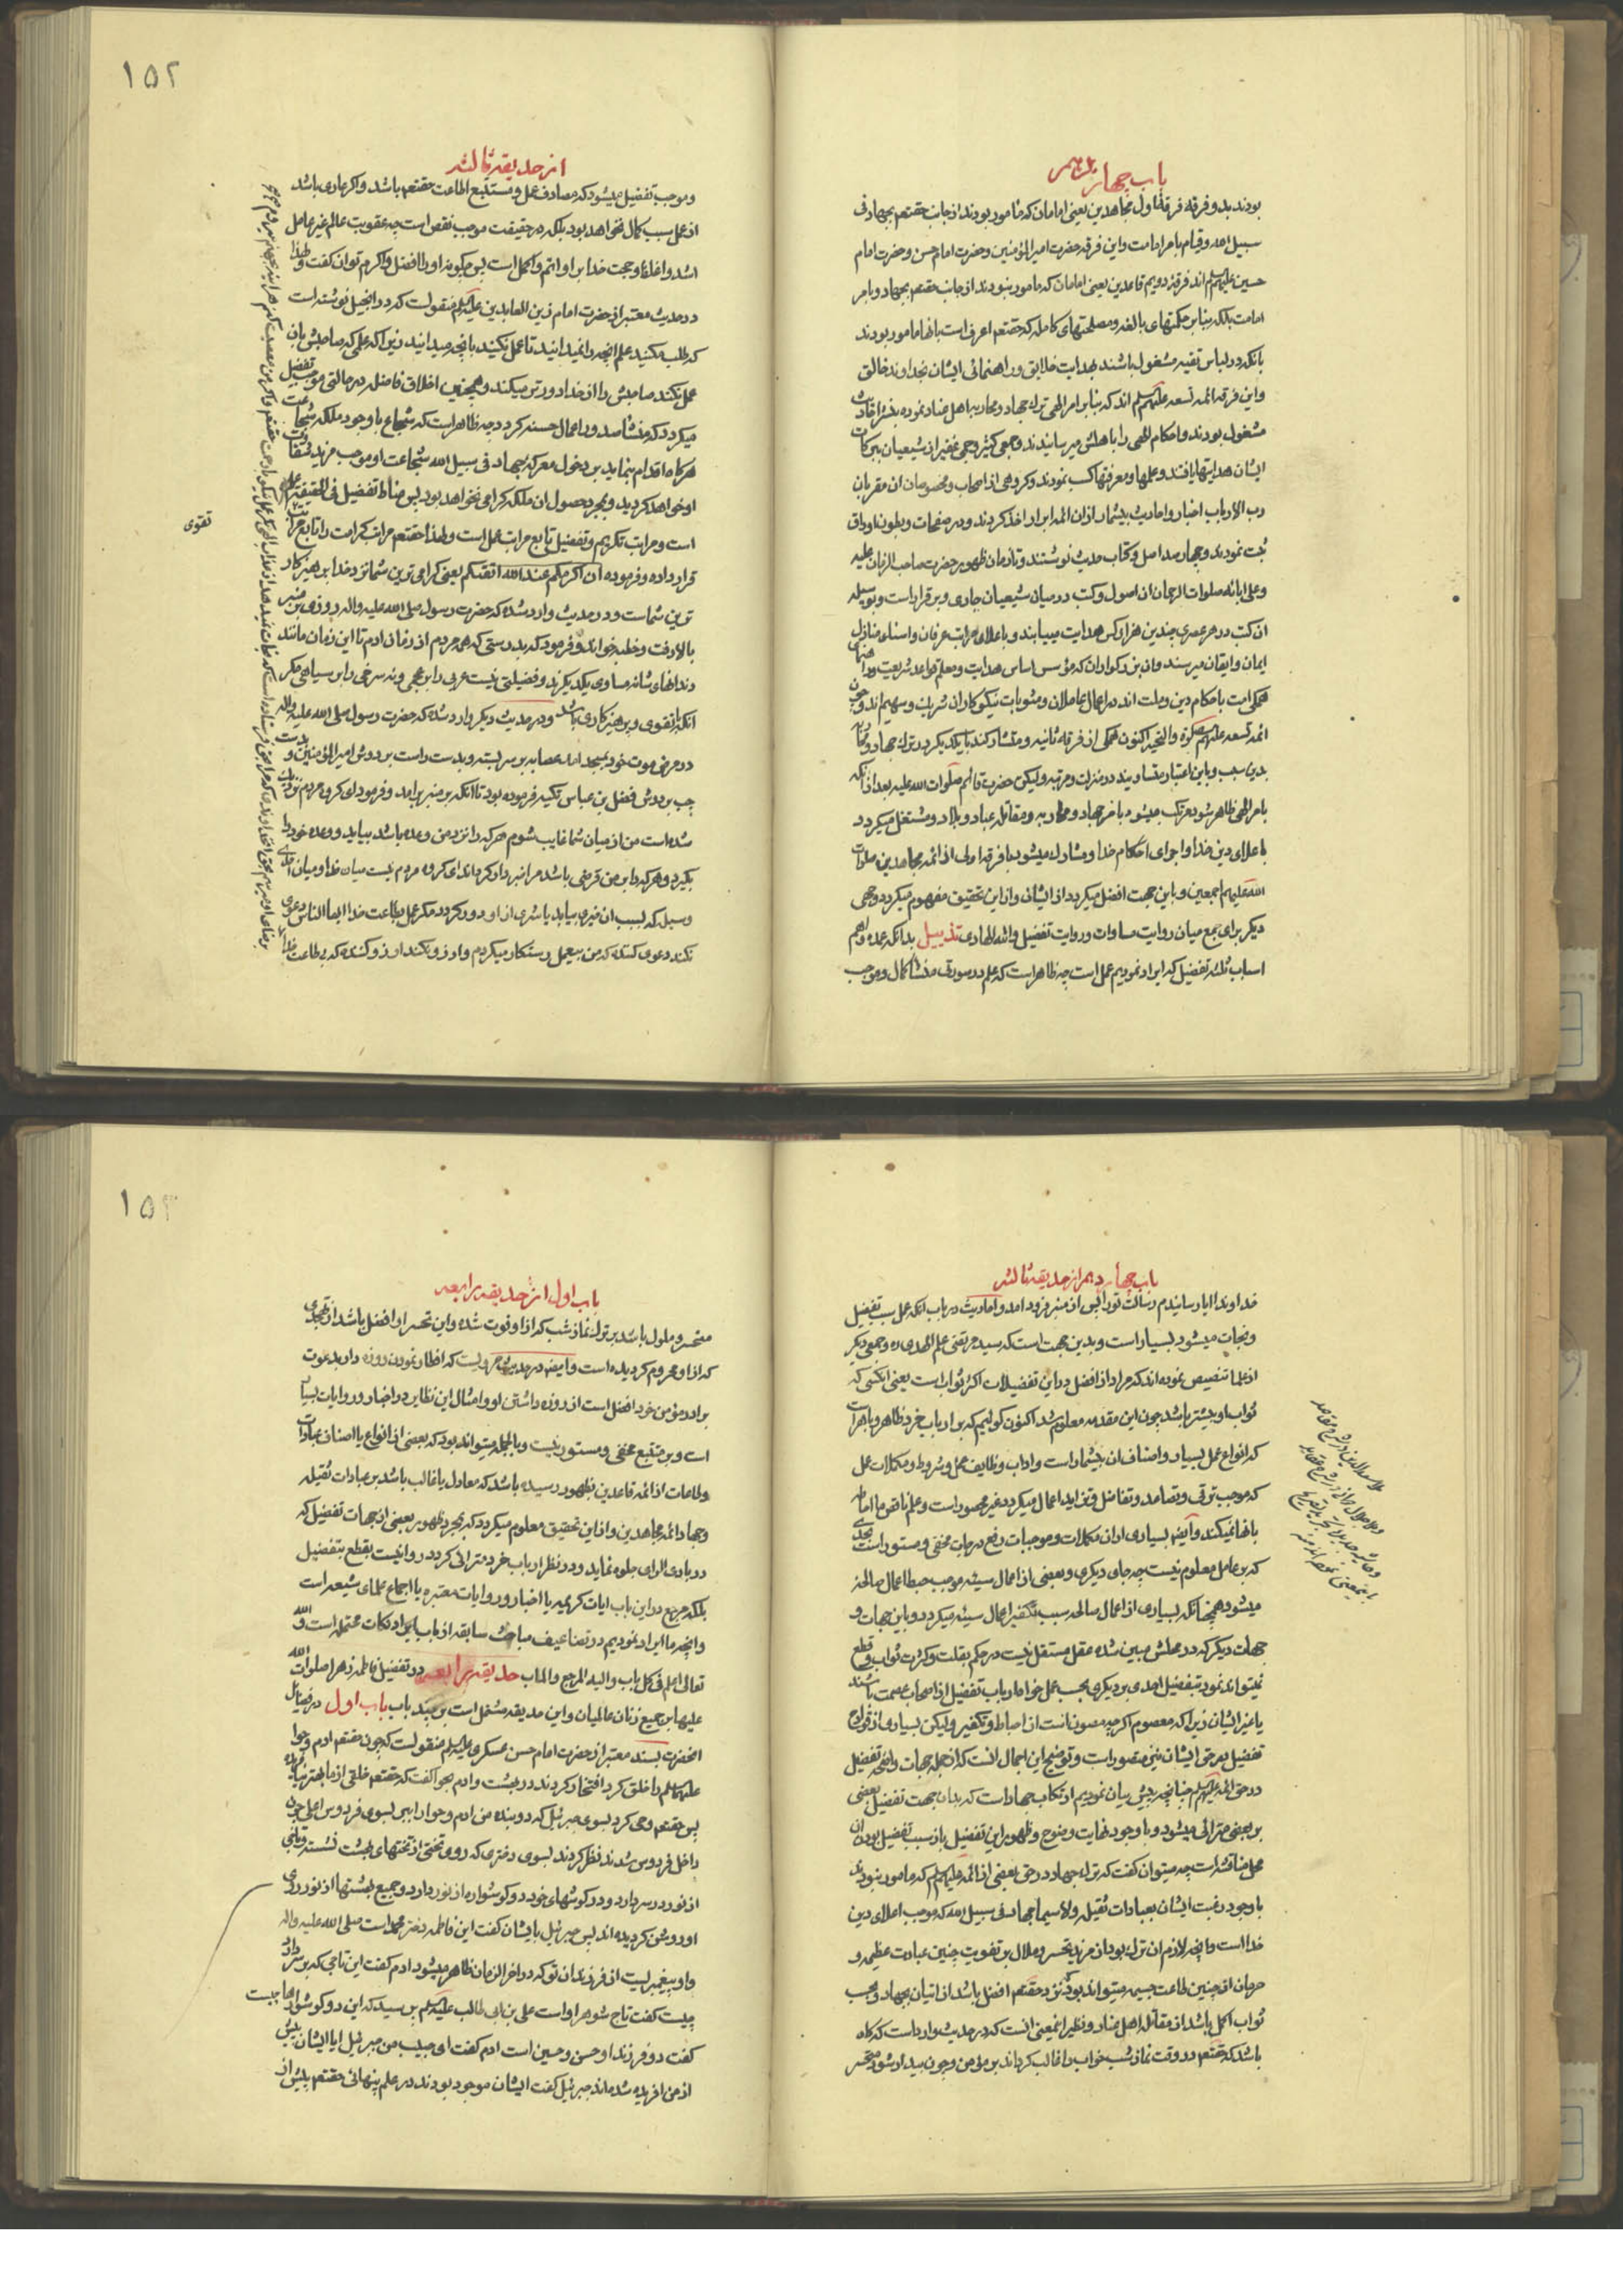 باب چهاردهم
بودند بدو فرقه فرقه اول مجاهدین یعنی امامان که مامور بودند از جانب حقتعم بجهاد فی
سبیل الله و قیام بامر امامت و این فرقه حضرت امیر المؤمنین و حضرت امام حسن و حضرت امام
حسین علیهم السلم اند فرقه دویم قاعدین یعنی امامان که مامور نبودند از جانب حقتعم بجهاد و بامر
امامت بلکه بنابر حکمتهای بالغه و مصلحتهای کامله که حقتعم اعرف است بانها مامور بودند
بانکه در لباس تقیه مشغول باشند بهدایت خلایق و راهنمائی ایشان بخداوند خالق
و این فرقه ائمه تسعه علیهم السلم اند که بنابر امر الهی ترک جهاد و محاربه اهل عناد نموده
مشغول بودند و احکام الهی را باهلش میرسانیدند و جمعی کثیر و جمی غفیر از شیعیان ببرکات
ایشان هدایتها یافتند و علمها و معرفتها کسب نمودند و گروهی از اصحاب و مخصوصان ان مقربان
رب الارباب اخبار و احادیث بیشمار از ان ائمه ابرار اخذ کردند و در صفحات و بطون اوراق
ثبت نمودند و چهار صد اصل و کتاب حدیث نوشتند و تا زمان ظهور حضرت صاحب الزمان علیه
و علی ابائه صلوات الرحمان ان اصول و کتب در میان شیعیان جاری و برقرار است و بوسیله
ان کتب در هر عصری چندین هزار کس هدایت مییابند و باعلای مراتب عرفان و اسنای منازل
ایمان و ایقان میرسند و ان بزرکواران که مؤسس اساس هدایت و معلم قواعد شریعت و راهنمای
همکی امت باحکام دین و ملت اند در اعمال عاملان و مثوبات نیکوکاران شریک و سهیم اند و چون
ائمه تسعه علیهم الصلوة والتحیة اکنون همکی از فرقه ثانیه و متشارکند با یکدیکر در ترک جهاد و قتال
بدین سبب و باین اعتبار متساویند در منزلت و مرتبه ولیکن حضرت قائم صلوات الله علیه بعد از انکه
بامر الهی ظاهر شود مرتکب میشود بامر جهاد و محاربه و مقاتله عباد و بلاد و مشتغل میکردد
باعلای دین خدا و اجرای احکام خدا و مشارک میشود با فرقه اولی از ائمه مجاهدین صلوات
الله علیهم اجمعین و باین جهت افضل میکردد از ایشان و از این تحقیق مفهوم میکردد وجهی
دیکر برای جمع میان روایت مساوات و روایت تفضیل والله الهادی تذییل بدانکه عمده و اهم
اسباب ثلثه تفضیل که ایراد نمودیم عمل است چه ظاهر است که علم در صورتی منشأ کمال و موجب
۱۵۲
از حدیقه ثالثه
و موجب تفضیل میشود که مصادف عمل و مستتبع اطاعت حقتعم باشد و اکر عاری باشد
از عمل سبب کمال نخواهد بود بلکه در حقیقت موجب نقص است چه عقوبت عالم غیر عامل
اشد و اغلظ و حجت خدا بر او اتم و اکمل است پس چکونه او را افضل و اکرم توان کفت و لهذا
در حدیث معتبر از حضرت امام زین العابدین علیه السلم منقولست که در انجیل نوشته است
که طلب مکنید علم انچه را نمیدانید تا عمل نکنید بانچه میدانید زیرا که علمی که صاحبش بان
عمل نکند صاحبش را از خدا دورتر میکند و همچنین اخلاق فاضله در حالتی موجب تفضیل
میکردد که منشأ صدور اعمال حسنه کردد چه ظاهر است که شجاع با وجود ملکه شجاعت
هرکاه اقدام ننماید بر دخول معرکه جهاد فی سبیل الله شجاعت او موجب مزید شقاوت
او خواهد کردید و بمجرد حصول ان ملکه کرامی نخواهد بود پس مناط تفضیل فی الحقیقة عمل
است و مراتب تکریم و تفضیل تابع مراتب عمل است و لهذا حقتعم مراتب کرامت را تابع مراتب تقوی
قرار داده و فرموده ان اکرمکم عند الله اتقیکم یعنی کرامی ترین شما نزد خدا پرهیز کار
ترین شماست و در حدیث وارد شده که حضرت رسول صلی الله علیه واله روزی بر منبر
بالا رفت و خطبه خواند و فرمود که بدرستی که همه مردم از زمان ادم تا این زمان مانند
دندانهای شانه مساوی یکدیکرند و فضیلتی نیست عربی را بر عجمی و نه سرخی را بر سیاهی مکر
انکه بتقوی و پرهیزکاری باشد و در حدیث دیکر وارد شده که حضرت رسول صلی الله علیه واله
در مرض موت خود بمسجد امد عصابه بر سر بسته و بدست راست بر دوش امیر المؤمنین و بدست
چپ بر دوش فضل بن عباس تکیه فرموده بود تا انکه بر منبر برامد و فرمود ای کروه مردم نزدیک
شده است من از میان شما غایب شوم هرکه را نزد من وعده باشد بیاید و وعده خود را
بکیرد و هرکه را بر من قرضی باشد مرا خبردار کرداند ای کروه مردم نیست میان خدا و میان احدی
وسیله که بسبب ان خیری بیابد یا شری از او دور کردد مکر عمل بطاعت خدا ایها الناس دعوی
نکند دعوی کننده که من بیعمل رستکار میکردم و ارزو نکند ارزو کننده که بی طاعت خدا
تقوی
باب چهاردهم از حدیقه ثالثه
خداوندا ایا رسانیدم رسالت تو را پس از منبر فرود امد و احادیث در باب انکه عمل سبب تفضیل
و نجات میشود بسیار است و بدین جهت است که سید مرتضی علم الهدی ره و جمعی دیکر
از علما تنصیص نموده اند که مراد از افضل در این تفضیلات اکثر ثواب است یعنی انکسی که
ثواب او بیشتر باشد چون این مقدمه معلوم شد اکنون کوئیم که بر ارباب خرد ظاهر و باهر است
که انواع عمل بسیار و اصناف ان بیشمار است و اداب و وظایف عمل و شروط و مکملات عمل
که موجب ترقی و تصاعد و تفاضل و تزاید اعمال میکردد غیر محصور است و علم ناقص ما احاطه
بانها نمیکند و ایضا بسیاری از ان مکملات و موجبات رفع درجات مخفی و مستور است بحدی
که بر عامل معلوم نیست چه جای دیکری و بعضی از اعمال سیئه موجب حبط اعمال صالحه
میشود همچنانکه بسیاری از اعمال صالحه سبب تکفیر اعمال سیئه میکردد و باین جهات و
جهات دیکر که در محلش مبین شده عقل مستقل نیست در حکم بقلت و کثرت ثواب و قطع
نمیتواند نمود بتفضیل احدی بر دیکری بحسب عمل خواه ارباب تفضیل از اصحاب عصمت باشند
یا غیر ایشان زیرا که معصوم اکرچه مصون است از احباط و تکفیر ولیکن بسیاری از قوادح
تفضیل در حق ایشان نیز متصور است و توضیح این اجمال انست که از جمله جهات واضحه تفضیل
در حق ائمه علیهم السلم چنانچه پیش بیان نمودیم ارتکاب جهاد است که بدان جهت تفضیل بعضی
بر بعضی مترائی میشود و با وجود نهایت وضوح و ظهور این تفضیل باز سبب تفضیل بودن ان
محل مناقشه است چه میتوان کفت که ترک جهاد در حق بعضی از ائمه علیهم السلم که مامور نبودند
با وجود رغبت ایشان بعبادات ثقیله ولا سیما جهاد فی سبیل الله که موجب اعلای دین
خدا است و انچه لازم ان ترک بود از مزید تحسر و ملال بر تفویت چنین عبادت عظیمه و
حرمان از چنین طاعت جسیمه میتواند بود که نزد حقتعم افضل باشد از اتیان بجهاد و بحسب
ثواب اکمل باشد از مقاتله اهل عناد و نظیر اینمعنی انست که در حدیث وارد است که کاه
باشد که حقتعم در وقت نماز شب خواب را غالب کرداند بر مؤمن و چون بیدار شود متحسر
۱۵۳
باب اول از حدیقه رابعه
متحسر و ملول باشد بر ترک نماز شب که از او فوت شده و این تحسر او افضل باشد از تهجدی
که از او محروم کردیده است و ایضا در حدیث مرویست که افطار نمودن روزه دار بدعوت
برادر مؤمن خود افضل است از روزه داشتن او و امثال این نظایر در اخبار و روایات بسیار
است و بر متتبع مخفی و مستور نیست و بالجمله میتواند بود که بعضی از انواع یا اصناف عبادات
و طاعات از ائمه قاعدین بظهور رسیده باشد که معادل یا غالب باشد بر عبادات ثقیله
و جهاد ائمه مجاهدین و از این تحقیق معلوم میکردد که بمجرد ظهور بعضی از جهات تفضیل که
در بادی الرای جلوه نماید و در نظر ارباب خرد مترائی کردد روا نیست بقطع بتفضیل
بلکه مرجع در این باب ایات کریمه یا اخبار و روایات معتبره یا اجماع علمای شیعه است
و انچه ما ایراد نمودیم در تضاعیف مباحث سابقه از باب ایراد نکات محتمله است والله
تعالی اعلم فی کل باب و الیه المرجع والماب حدیقه رابعه در تفضیل فاطمه زهرا صلوات الله
علیها بر جمیع زنان عالمیان و این حدیقه مشتمل است بر چند باب باب اول در فضایل
انحضرت بسند معتبر از حضرت امام حسن عسکری علیه السلم منقولست که چون حقتعم ادم و حوا
علیهما السلم را خلق کرد افتخار کردند در بهشت و ادم بحوا کفت که حقتعم خلقی از ما بهتر نیافریده
پس حقتعم وحی کرد بسوی جبرئیل که دو بنده من ادم و حوا را ببر بسوی فردوس اعلی چون
داخل فردوس شدند نظر کردند بسوی دختری که روی تختی از تختهای بهشت نشسته و تاجی
از نور در سر دارد و در کوشهای خود دو کوشواره از نور دارد و جمیع بهشتها از نور روی
او روشن کردیده اند پس جبرئیل بایشان کفت این فاطمه دختر محمد است صلی الله علیه واله
و او پیغمبریست از فرزندان تو که در اخر الزمان ظاهر میشود ادم کفت این تاجی که بر سر دارد
چیست کفت تاج شوهر او است علی بن ابی طالب علیه السلم پرسید که این دو کوشوار انها چیست
کفت دو فرزند او حسن و حسین است ادم کفت ای حبیب من جبرئیل ایا ایشان پیش
از من افریده شده اند جبرئیل کفت ایشان موجود بودند در علم پنهانی حقتعم پیش از